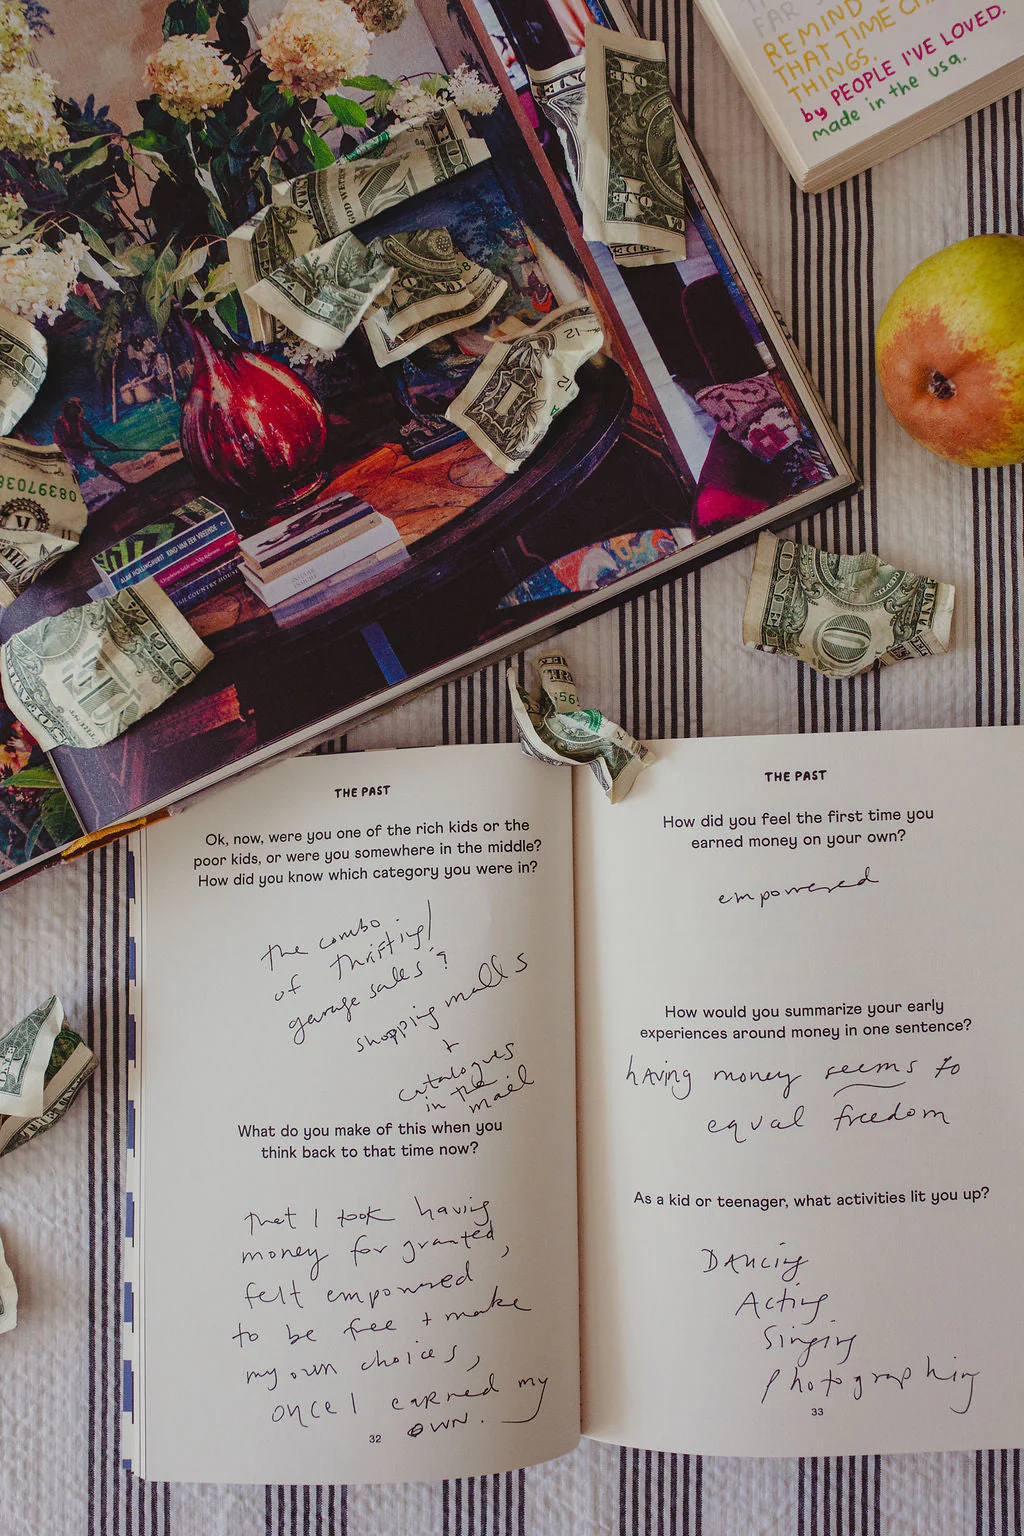 FAR
REMIND
THAT TIME
THINGS.
by PEOPLE I'VE LOVED.
made in the usa.
ONE
ONE
12
12
08397038
ALAN HOLLINGHURST KIND VAN EEN VREEMDE
COUNTRY HOUSE
THE PAST
Ok, now, were you one of the rich kids or the
poor kids, or were you somewhere in the middle?
How did you know which category you were in?
the combo
of thrifting/
garage sales?
shopping malls
+
catalogues
in the
mail
What do you make of this when you
think back to that time now?
that I took having
money for granted,
felt empowered
to be free + make
my own choices,
once I earned my
own.
32
THE PAST
How did you feel the first time you
earned money on your own?
empowered
How would you summarize your early
experiences around money in one sentence?
having money seems to
equal freedom
As a kid or teenager, what activities lit you up?
Dancing
Acting
Singing
Photographing
33